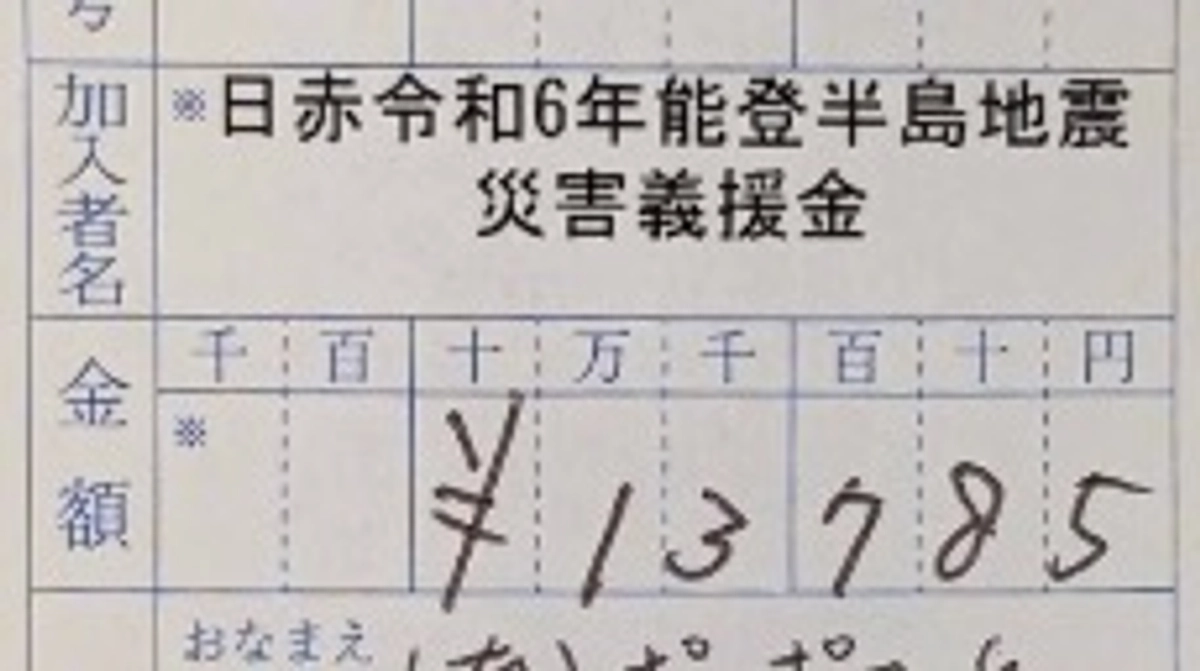 加入者名
※日赤令和6年能登半島地震
災害義援金
金額
千 百 十 万 千 百 十 円
※ ¥13785
おなまえ